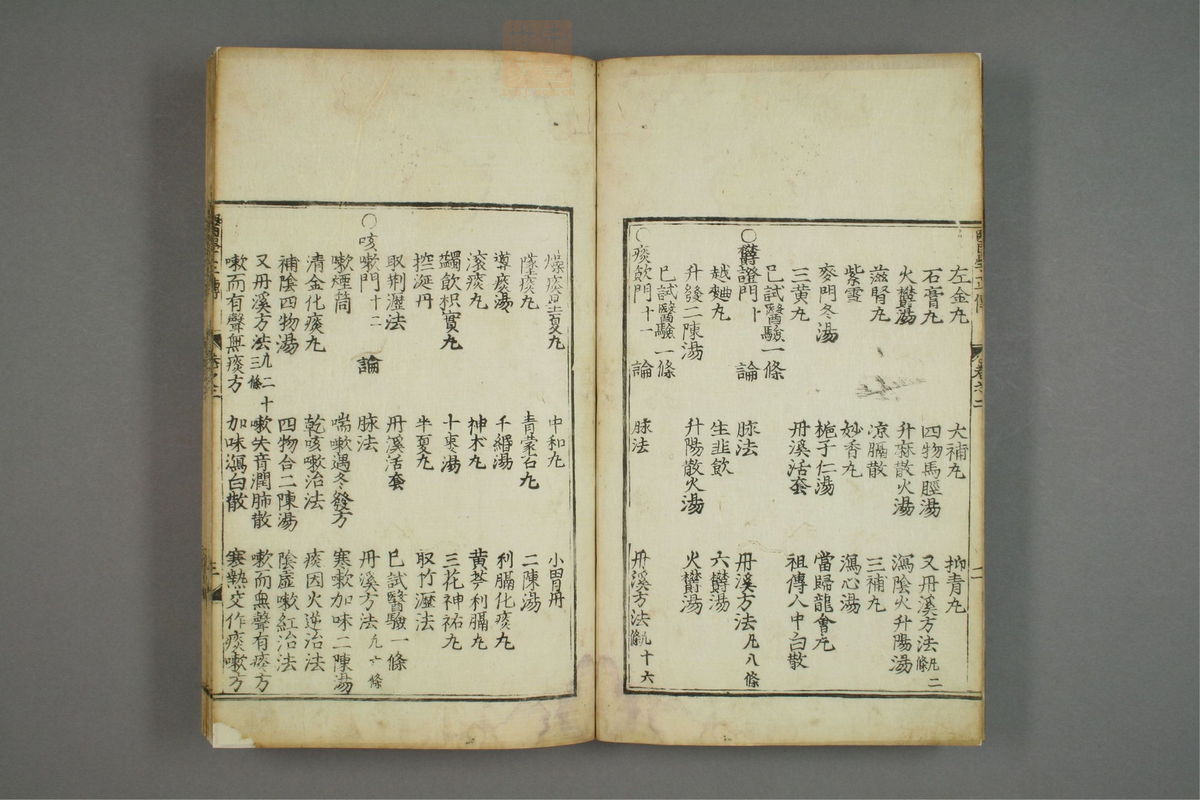 左金丸 大補丸 抑青丸
石膏丸 四物馬脛湯 又丹溪方法凡二條
火鬱湯 升麻散火湯 瀉陰火升陽湯
滋腎丸 凉膈散 三補丸
紫雪 妙香丸 瀉心湯
麥門冬湯 梔子仁湯 當歸龍會丸
三黃丸 丹溪活套 祖傳人中白散
已試醫驗一條
○鬱證門十 論 脉法 丹溪方法凡八條
越麯丸 生韭飲 六鬱湯
升發二陳湯 升陽散火湯 火鬱湯
已試醫驗一條
○痰飲門十一 論 脉法 丹溪方法凡十六條
燥痰星夏丸 中和丸 小胃丹
墜痰丸 青蒙石丸 二陳湯
導痰湯 千緡湯 利膈化痰丸
滚痰丸 神朮丸 黃芩利膈丸
蠲飲枳實丸 十棗湯 三花神祐丸
控涎丹 半夏丸 取竹瀝法
取荆瀝法 丹溪活套 已試醫驗一條
○咳嗽門十二 論 脉法 丹溪方法凡六條
嗽煙筒 喘嗽遇冬發方 寒嗽加味二陳湯
清金化痰丸 乾咳嗽治法 痰因火逆治法
補陰四物湯 四物合二陳湯 陰虛嗽紅治法
又丹溪方法凡二十三條 嗽失音潤肺散 嗽而無聲有痰方
嗽而有聲無痰方 加味瀉白散 寒熱交作痰嗽方
醫學正傳 卷之二 三